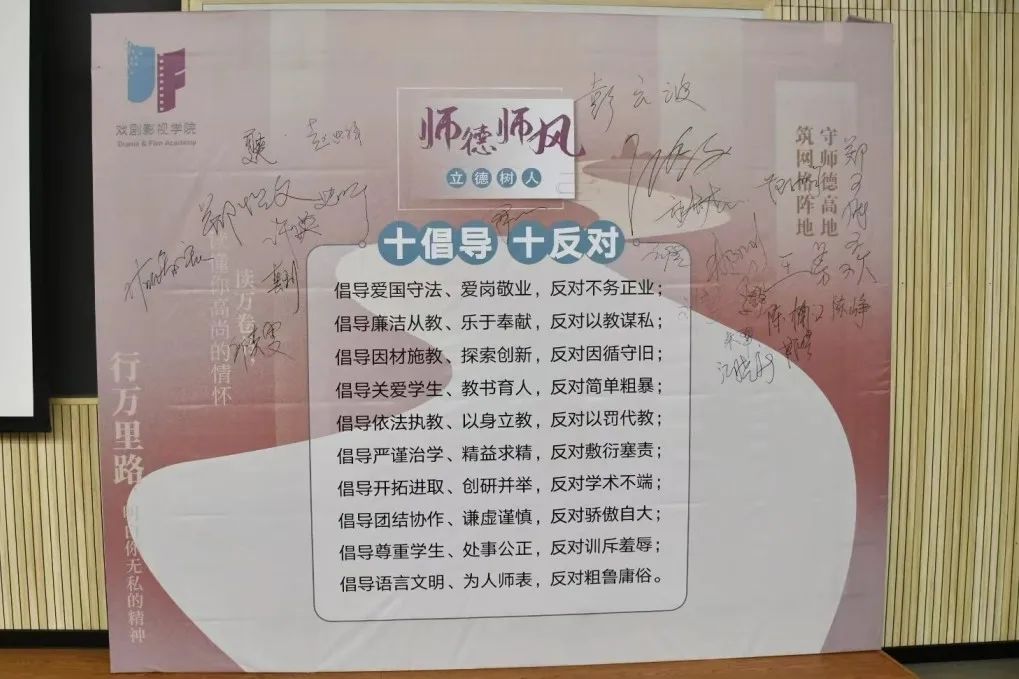 戏剧影视学院
Drama & Film Academy
师德师风
立德树人
守师德高地
筑网格阵地
十倡导 十反对
倡导爱国守法、爱岗敬业，反对不务正业；
倡导廉洁从教、乐于奉献，反对以教谋私；
倡导因材施教、探索创新，反对因循守旧；
倡导关爱学生、教书育人，反对简单粗暴；
倡导依法执教、以身立教，反对以罚代教；
倡导严谨治学、精益求精，反对敷衍塞责；
倡导开拓进取、创研并举，反对学术不端；
倡导团结协作、谦虚谨慎，反对骄傲自大；
倡导尊重学生、处事公正，反对训斥羞辱；
倡导语言文明、为人师表，反对粗鲁庸俗。
读万卷
读懂你高尚的情怀
行万里路
明白你无私的精神
彭云波
江晓丹